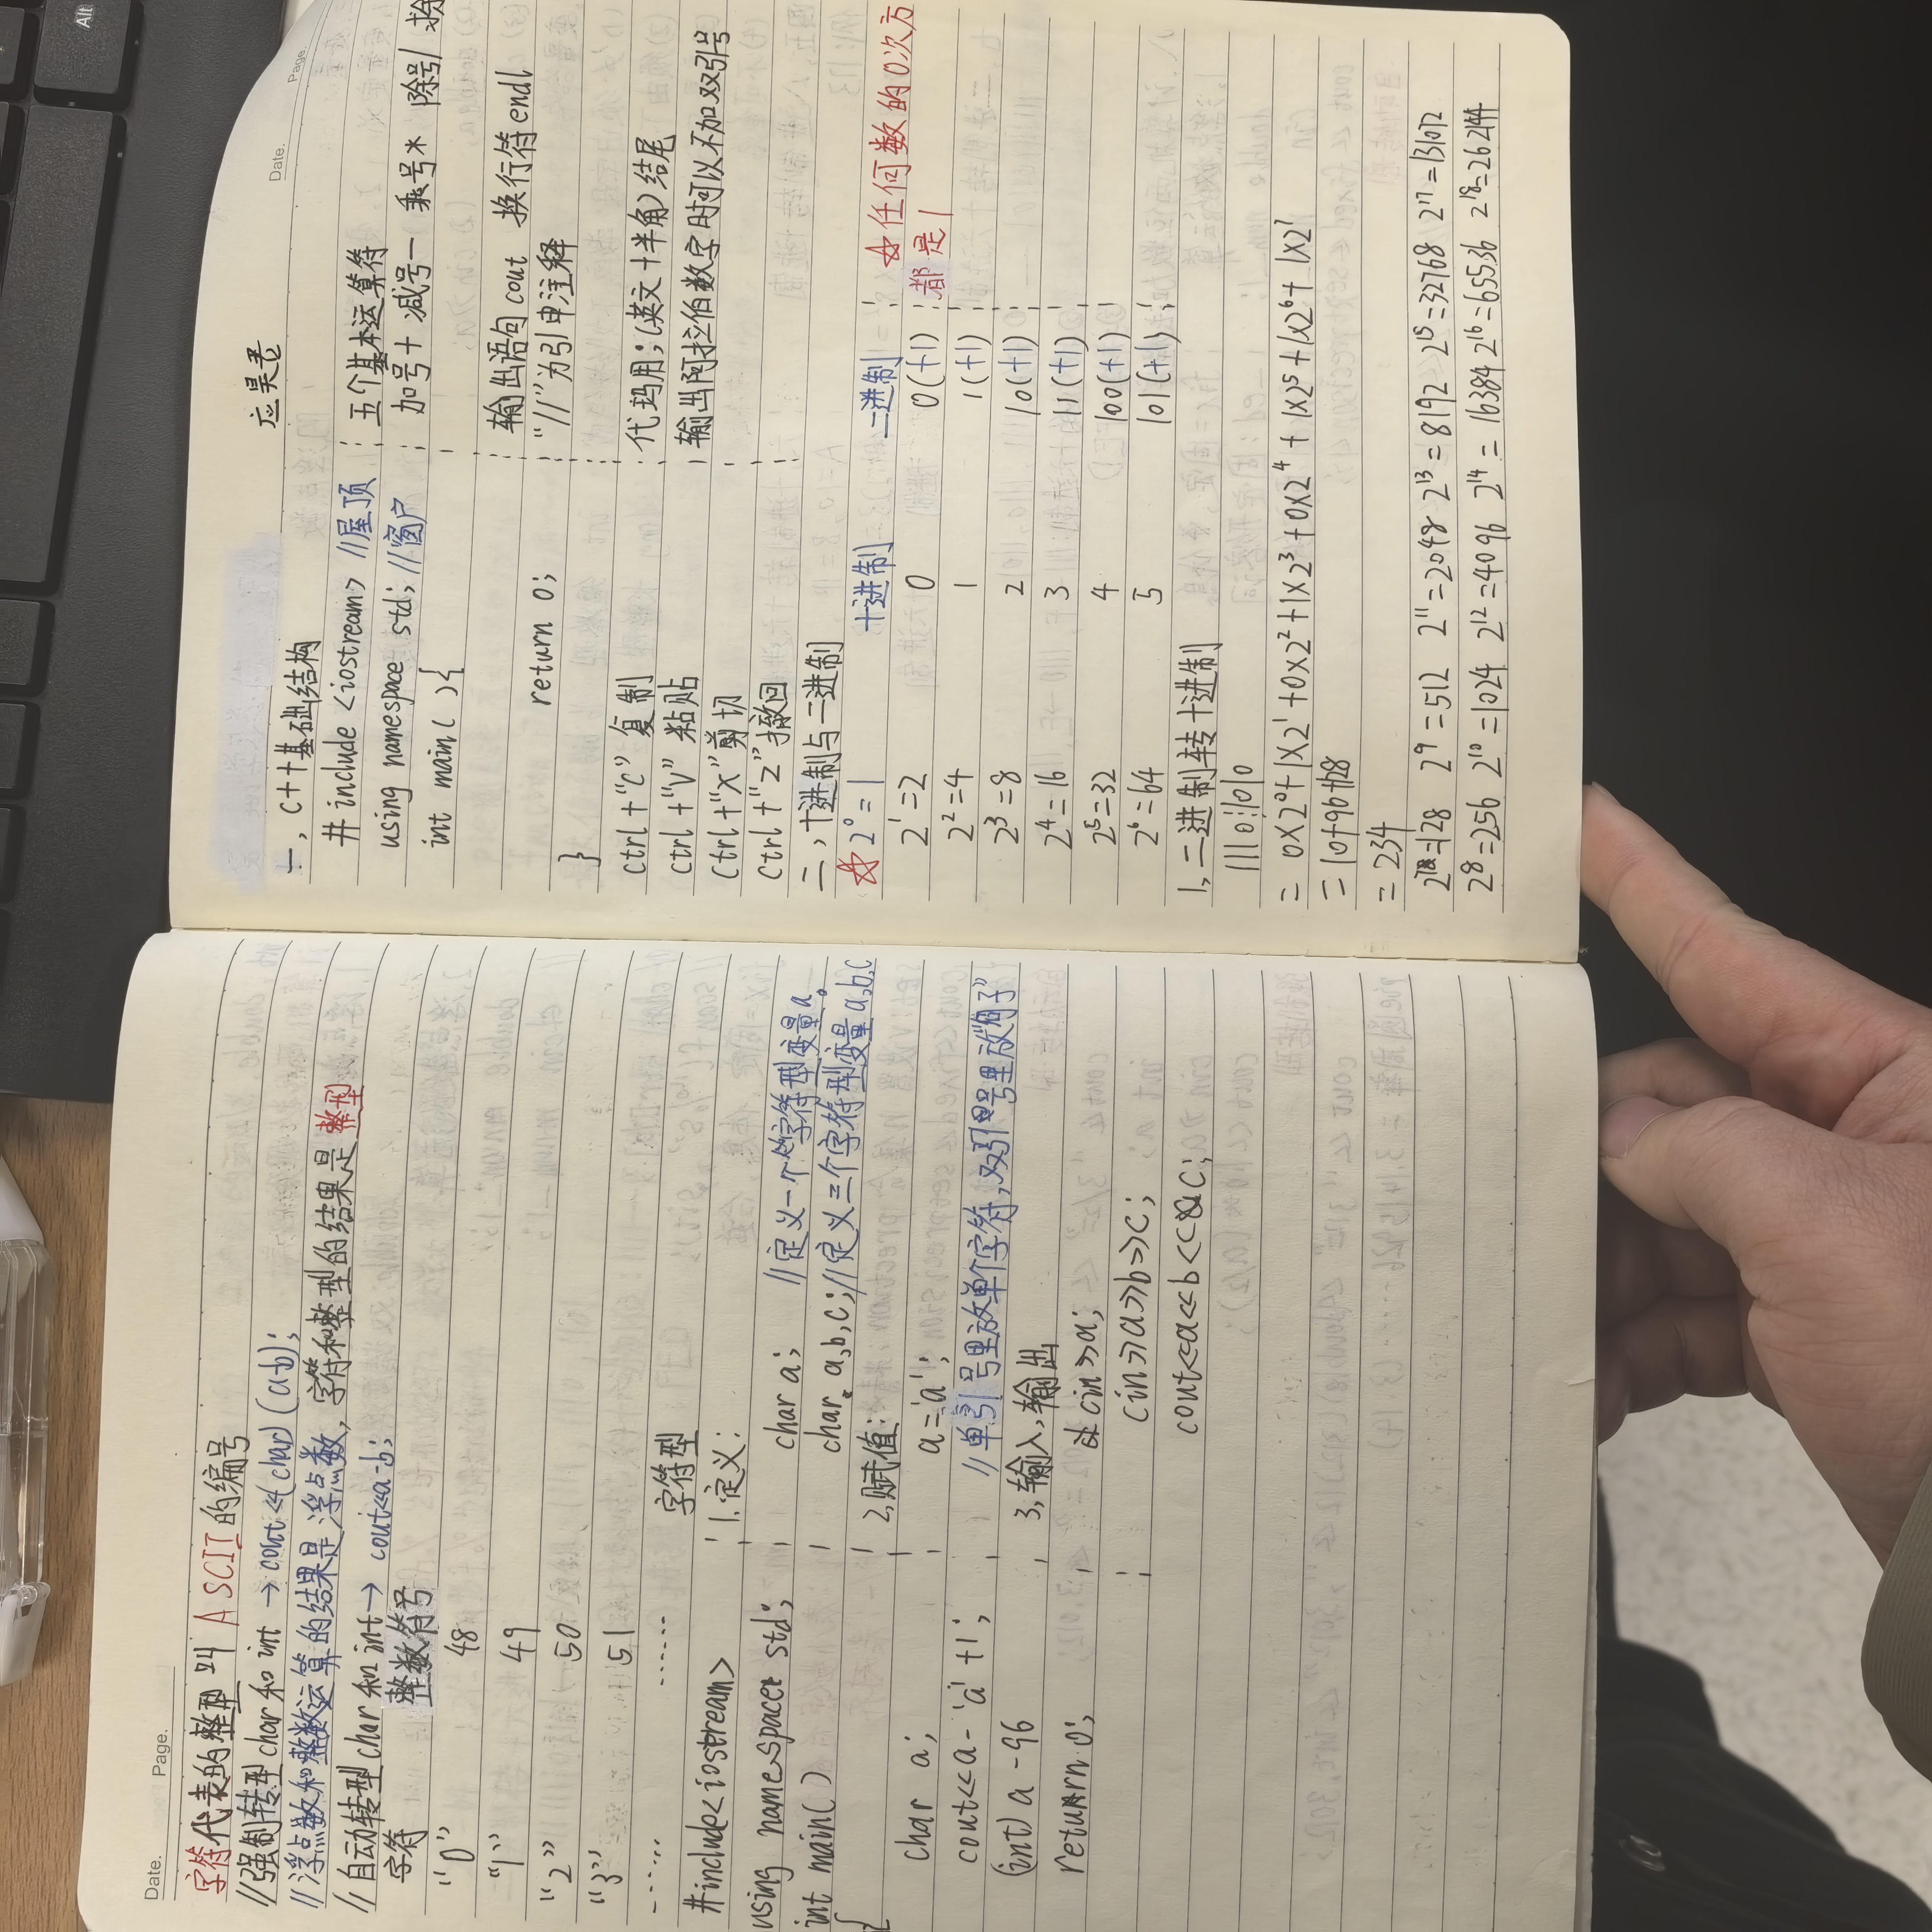 Date. Page.
字符代表的整型叫 ASCII 的编号
//强制转型 char 和 int → cout<<(char)(a-b);
//浮点数和整数运算的结果是浮点数, 字符和整型的结果是 整型
//自动转型 char 和 int → cout<<a-b;
字符 整数符号
“0” 48
“1” 49
“2” 50
“3” 51
...... ......
#include<iostream>
using namespace std;
int main()
{
char a;
cout<<a-'a'+1;
(int) a-96
return 0;
字符型
1.定义:
char a; //定义一个字符型变量a。
char a,b,c; //定义三个字符型变量a,b,c
2.赋值:
a='a';
//单引号里放单个字符,双引号里放“句子”
3,输入,输出
cin>>a;
cin>>a>>b>>c;
cout<<a<<b<<c;
Date. Page.
应昊卷
一, C++基础结构
# include <iostream> //屋顶
using namespace std; //窗户
int main(){
return 0;
}
五个基本运算符
加号+ 减号- 乘号* 除号/
输出语句 cout 换行符 endl
“//”为引申注释
代玛用;(英文+半角)结尾
输出阿拉伯数字时可以不加双引号
ctrl+“C” 复制
ctrl+“V” 粘贴
Ctrl+“X” 剪切
Ctrl+“Z” 撤回
二, 十进制与二进制
☆2⁰=1 十进制 二进制 ☆任何数的0次方
2¹=2 0 0(+1) 都是1
2²=4 1 1(+1)
2³=8 2 10(+1)
2⁴=16 3 11(+1)
2⁵=32 4 100(+1)
2⁶=64 5 101(+1)
1, 二进制转十进制
11101010
= 0X2⁰+1X2¹+0X2²+1X2³+0X2⁴+1X2⁵+1X2⁶+1X2⁷
=10+96+128
=234
2⁷=128 2⁹=512 2¹¹=2048 2¹³=8192 2¹⁵=32768 2¹⁷=131072
2⁸=256 2¹⁰=1024 2¹²=4096 2¹⁴=16384 2¹⁶=65536 2¹⁸=262144
Alt